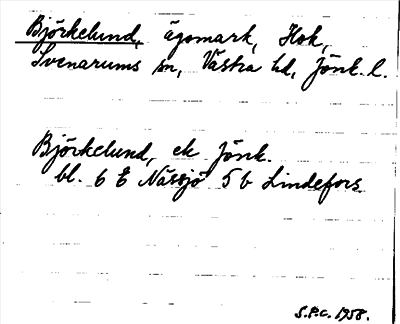 Björkelund, ägomark, Hok,
Svenarums sn, Västra hd, Jönk. l.
Björkelund, ek Jönk.
bl. 6 E Nässjö 5 b Lindefors
S.P.C. 1958.